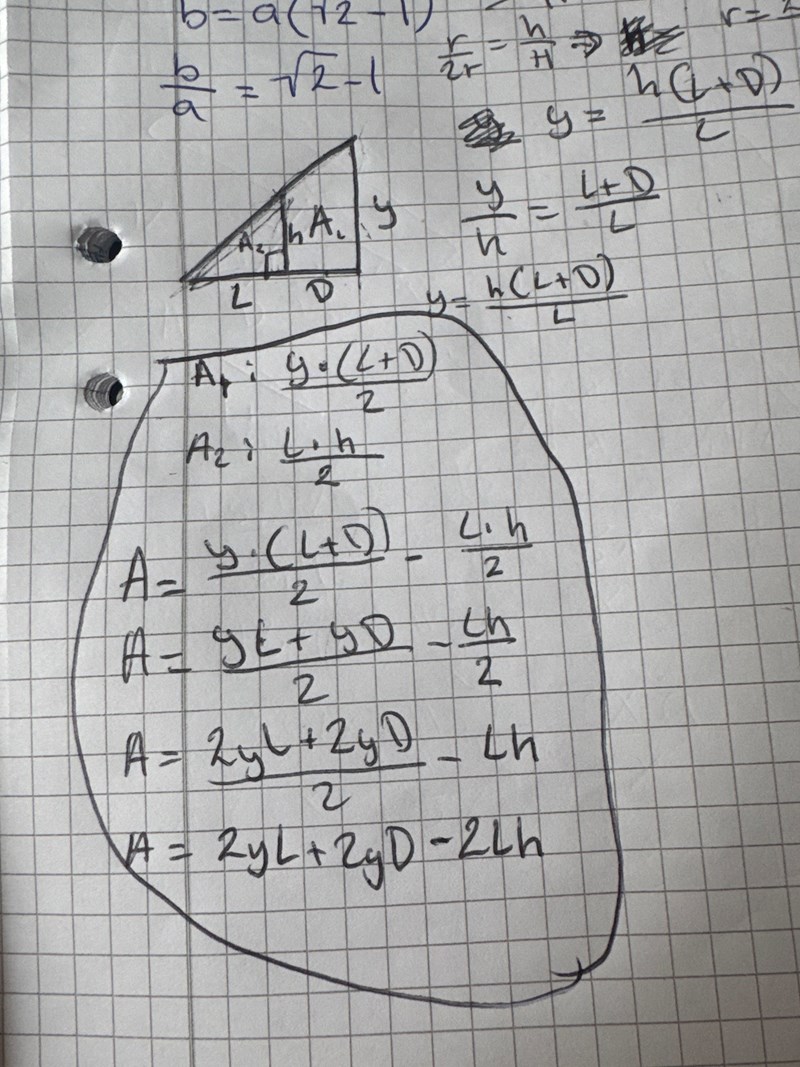 b = a(√2 - 1)
b/a = √2 - 1
r/2r = h/H ⇒
r =
y = h(L+D)/L
y/h = L+D/L
y = h(L+D)/L
A₂ h A₁ y
L D
A₁: y·(L+D)/2
A₂: L·h/2
A = y·(L+D)/2 - L·h/2
A = yL + yD/2 - Lh/2
A = 2yL + 2yD/2 - Lh
A = 2yL + 2yD - 2Lh